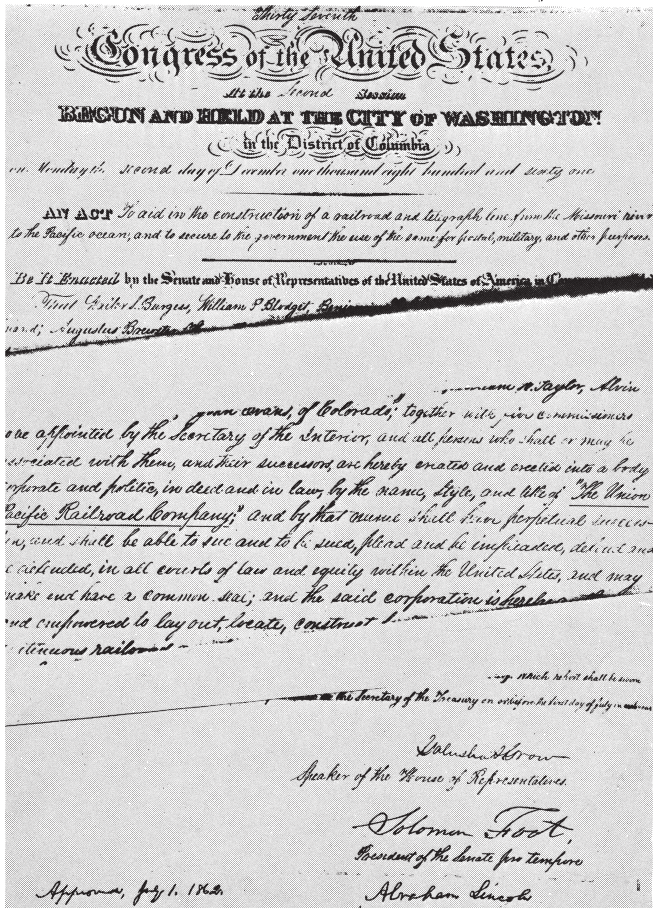 Thirty Seventh
Congress of the United States,
At the Second Session
BEGUN AND HELD AT THE CITY OF WASHINGTON
in the District of Columbia
on Monday the second day of December one thousand eight hundred and sixty one
AN ACT To aid in the construction of a railroad and telegraph line from the Missouri river
to the Pacific ocean, and to secure to the government the use of the same for postal, military, and other purposes.
Be It Enacted by the Senate and House of Representatives of the United States of America in
That S. Burgess, William P. Blodget,
Augustus
W. Taylor, Alvin
evans, of Colorado," together with five commissioners
appointed by the Secretary of the Interior, and all persons who shall or may be
ssociated with them, and their successors, are hereby created and erected into a body
orporate and politic, in deed and in law, by the name, style, and title of "The Union
Pacific Railroad Company;" and by that name shall have perpetual success-
and shall be able to sue and to be sued, plead and be impleaded, defend and
defended, in all courts of law and equity within the United States, and may
make and have a common seal; and the said corporation is
nd empowered to lay out, locate, construct
railroad
which report shall be sworn
the Secretary of the Treasury on or before the first day of July in
Galusha A Grow
Speaker of the House of Representatives.
Solomon Foot,
President of the Senate pro tempore
Approved, July 1. 1862.
Abraham Lincoln